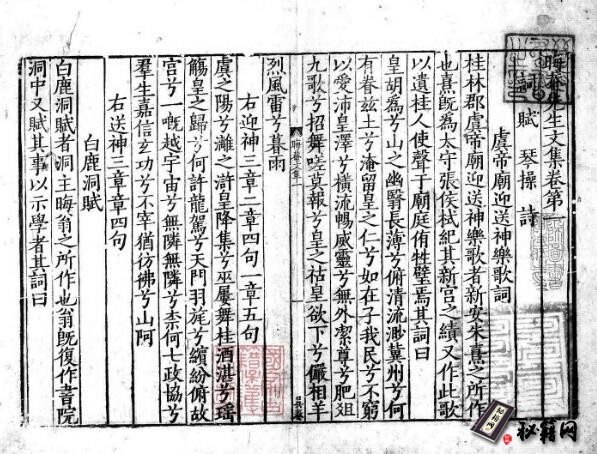 晦菴先生文集卷第一
詞 賦 琴操 詩
虞帝廟迎送神樂歌詞
桂林郡虞帝廟迎送神樂歌者新安朱熹之所作
也熹既為太守張侯栻紀其新宫之績又作此歌
以遺桂人使聲于廟庭侑牲璧焉其詞曰
皇胡為兮山之幽翳長薄兮俯清流渺冀州兮何
有眷兹土兮淹留皇之仁兮如在子我民兮不窮
以愛沛皇澤兮横流暢威靈兮無外潔尊兮肥俎
九歌兮招舞嗟莫報兮皇之祜皇欲下兮儼相羊
烈風雷兮暮雨
右迎神三章二章四句一章五句
虞之陽兮灕之滸皇降集兮巫屢舞桂酒湛兮瑶
觴皇之歸兮何許龍駕兮天門羽旄兮繽紛俯故
宫兮一嘅越宇宙兮無隣無隣兮柰何七政協兮
羣生嘉信玄功兮不宰猶彷彿兮山阿
右送神三章章四句
白鹿洞賦
白鹿洞賦者洞主晦翁之所作也翁既復作書院
洞中又賦其事以示學者其詞曰
秘籍网